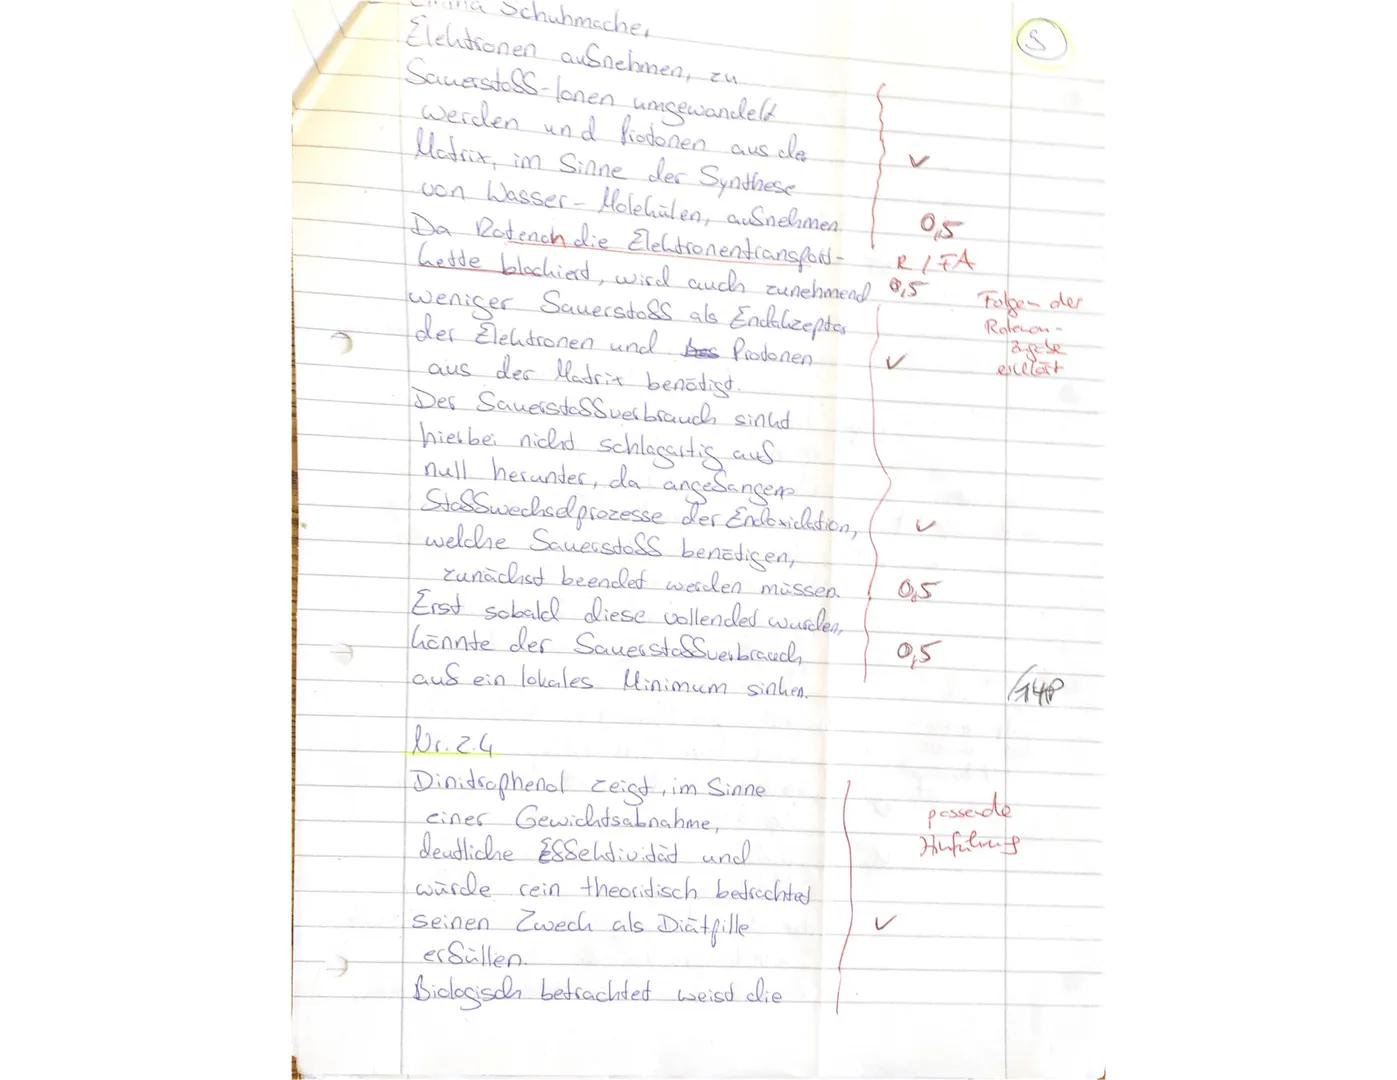 Schuhmacher
5
Elektronen aufnehmen, zu
Sauerstoff-Ionen umgewandelt
werden und Protonen aus der
Matrix, im Sinne der Synthese
✓
von Wasser-Molekülen, aufnehmen.
0,5
Da Rotenon die Elektronentransport-
R / FA
kette blockiert, wird auch zunehmend
0,5
Folgen der
Rotenon-
zugabe
erklärt
weniger Sauerstoff als Endakzeptor
der Elektronen und Protonen
✓
aus der Matrix benötigt.
Der Sauerstoffverbrauch sinkt
hierbei nicht schlagartig auf
null herunter, da angefangene
Stoffwechselprozesse der Endoxidation,
✓
welche Sauerstoff benötigen,
zunächst beendet werden müssen.
0,5
Erst sobald diese vollendet wurden,
könnte der Sauerstoffverbrauch
0,5
auf ein lokales Minimum sinken.
/14P
Nr. 2.4
Dinitrophenol zeigt, im Sinne
einer Gewichtsabnahme,
passende
Hinführung
deutliche Effektivität und
würde rein theoritisch betrachtet
seinen Zweck als Diätpille
✓
erfüllen.
Biologisch betrachtet weist die